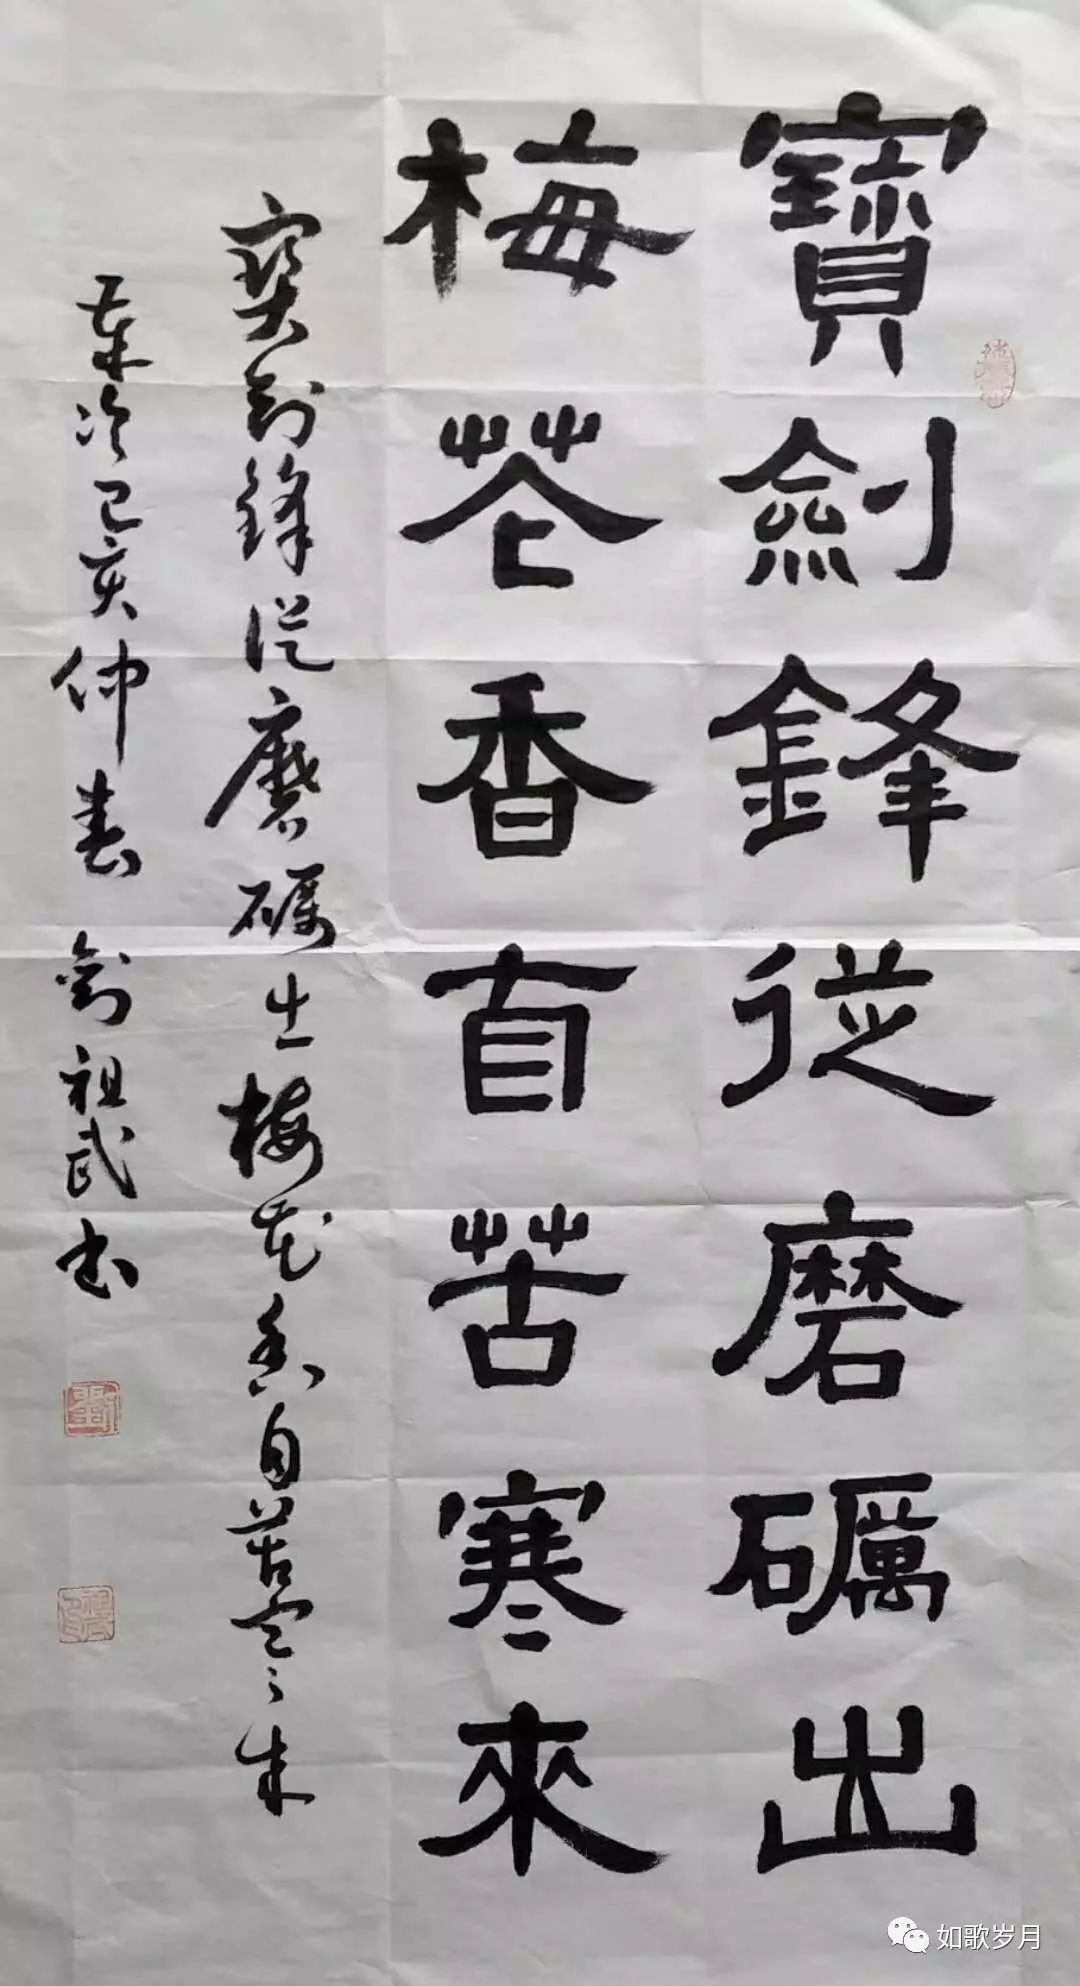 寶劍鋒從磨礪出
梅花香自苦寒來
寶劍鋒從磨礪出梅花香自苦寒來
歲次己亥仲春 劉祖武书
如歌岁月